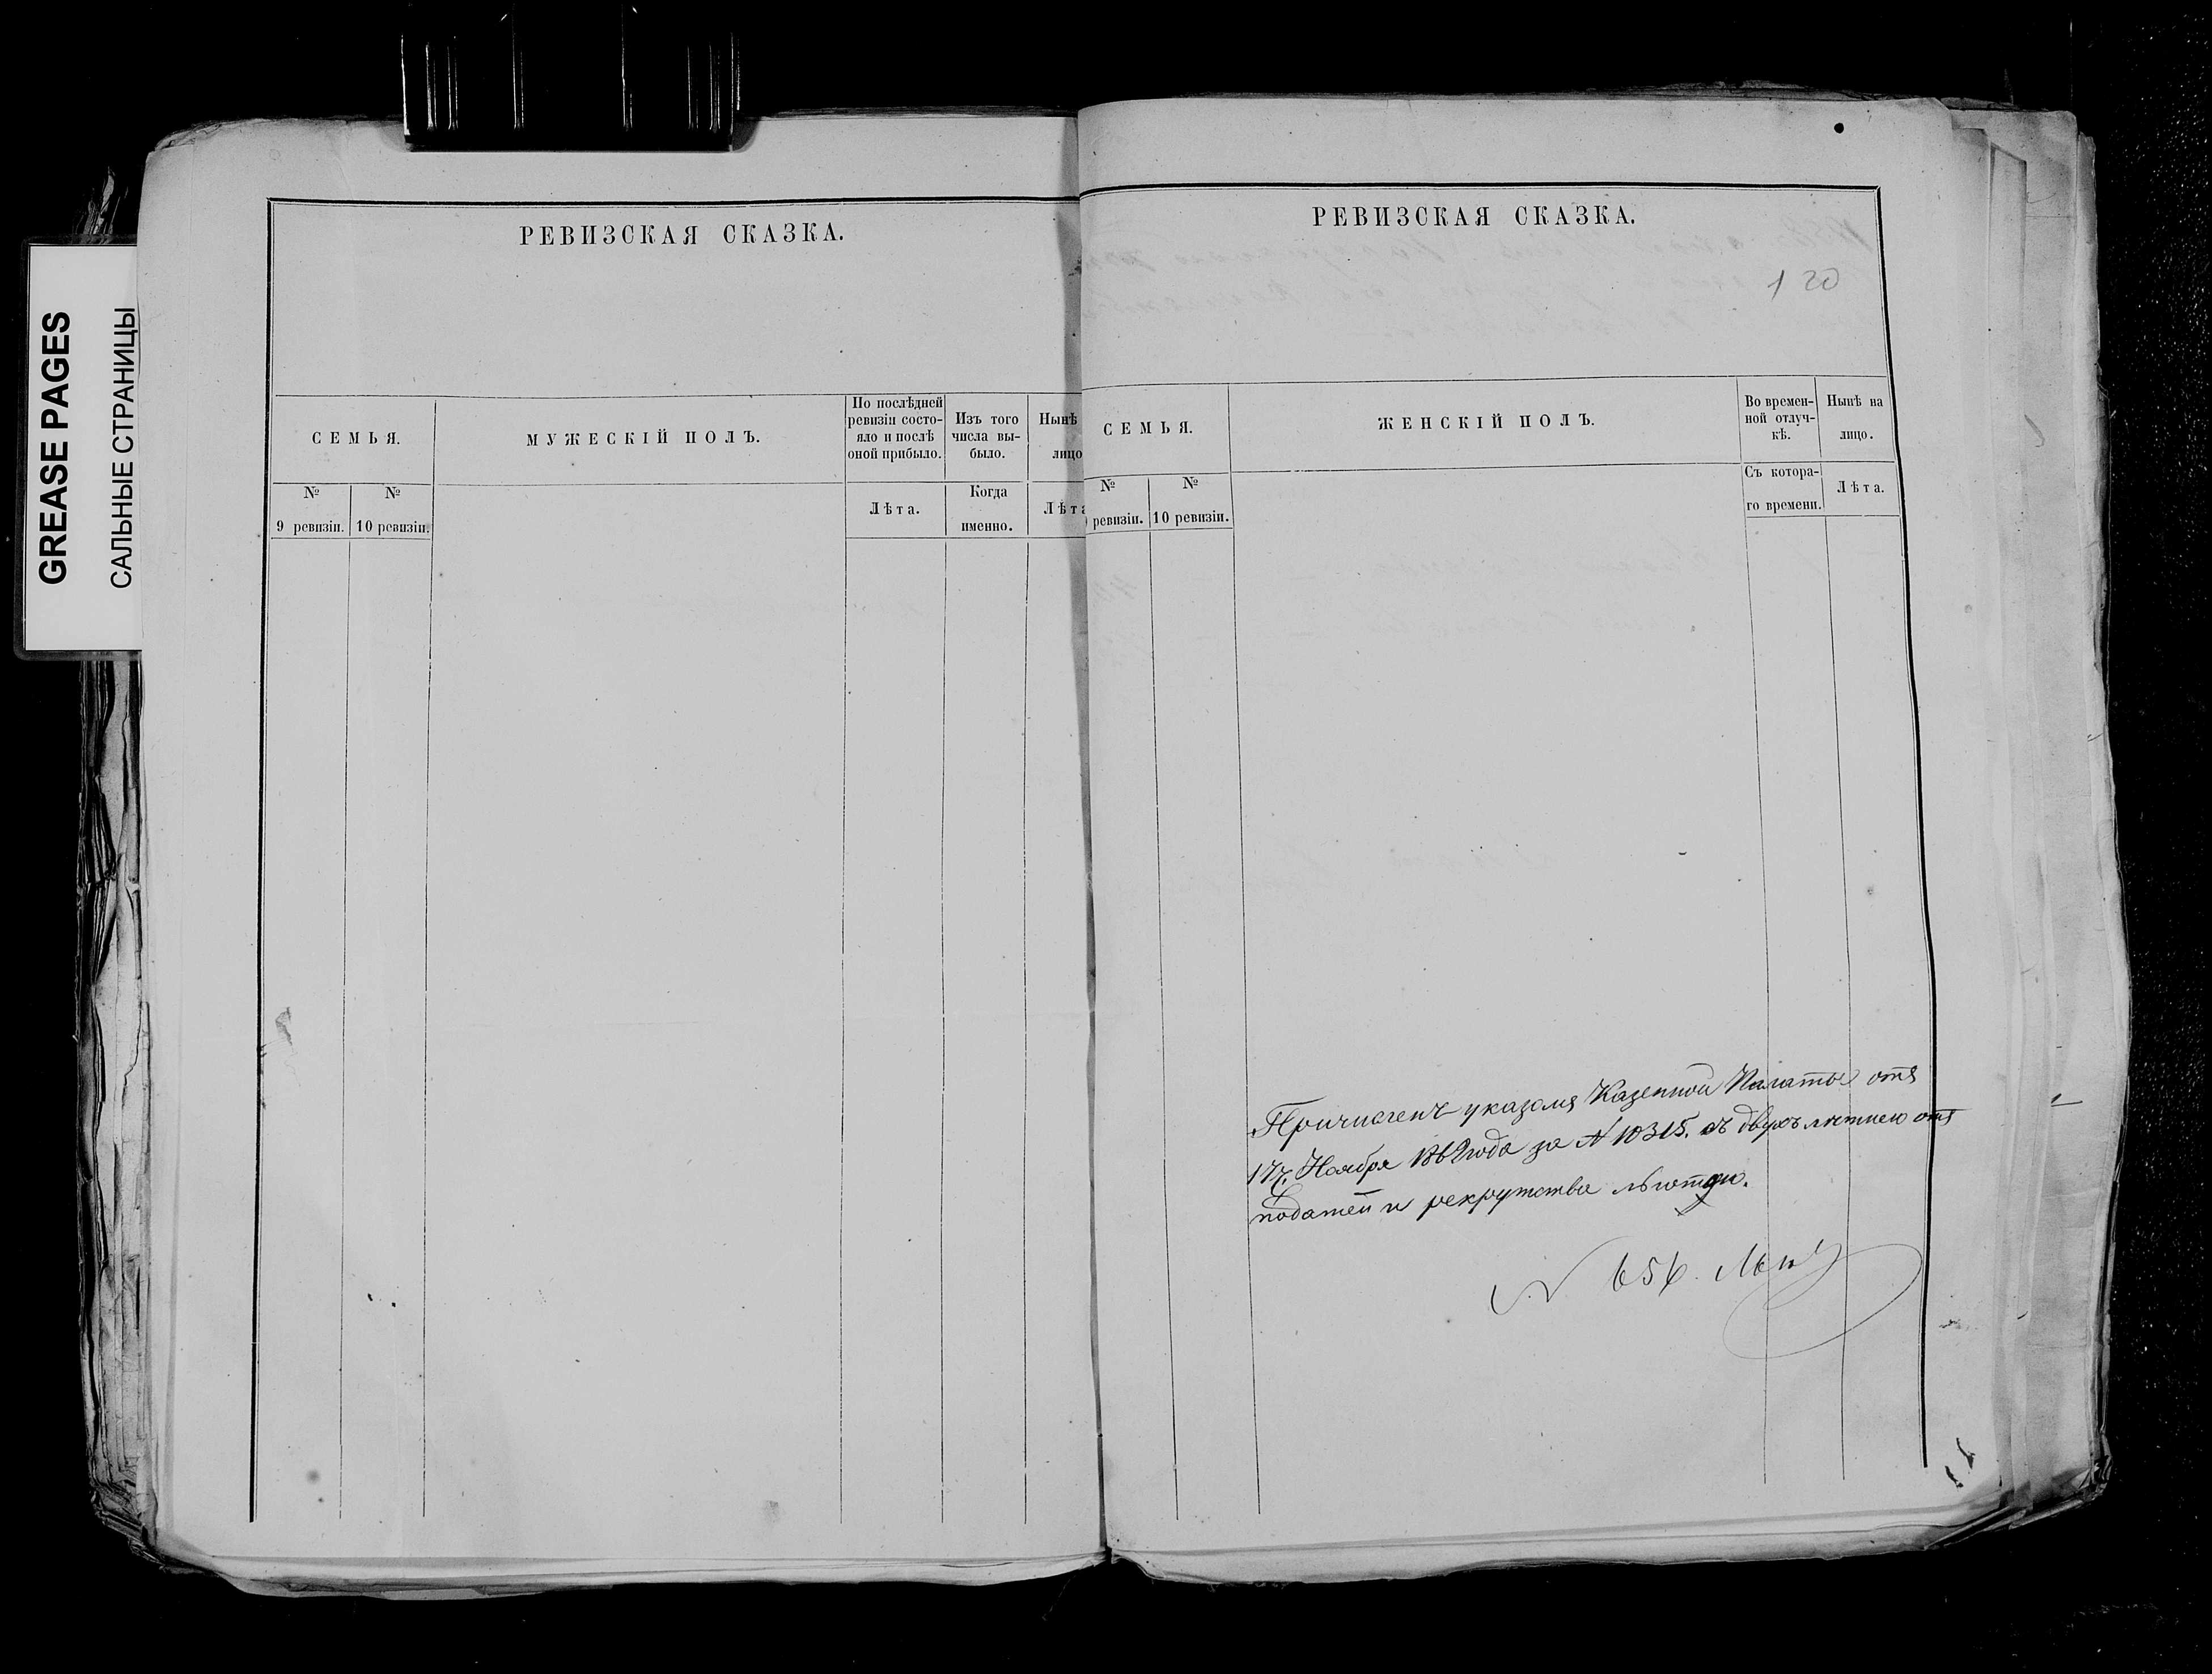 GREASE PAGES
САЛЬНЫЕ СТРАНИЦЫ
РЕВИЗСКАЯ СКАЗКА.
СЕМЬЯ.
МУЖЕСКІЙ ПОЛЪ.
По послѣдней
ревизіи состо-
яло и послѣ
оной прибыло.
Изъ того
числа вы-
было.
Нынѣ
лицо
№
9 ревизіи.
№
10 ревизіи.
Лѣта.
Когда
именно.
Лѣта
РЕВИЗСКАЯ СКАЗКА.
120
СЕМЬЯ.
ЖЕНСКІЙ ПОЛЪ.
Во времен-
ной отлуч-
кѣ.
Нынѣ на
лицо.
№
ревизіи.
№
10 ревизіи.
Съ котора-
го времени.
Лѣта.
Причисленъ указомъ Казенной Палаты отъ
17. Ноября 1862 года за № 10315. съ двухълѣтнею отъ
податей и рекрутства льготою.
№ 656.